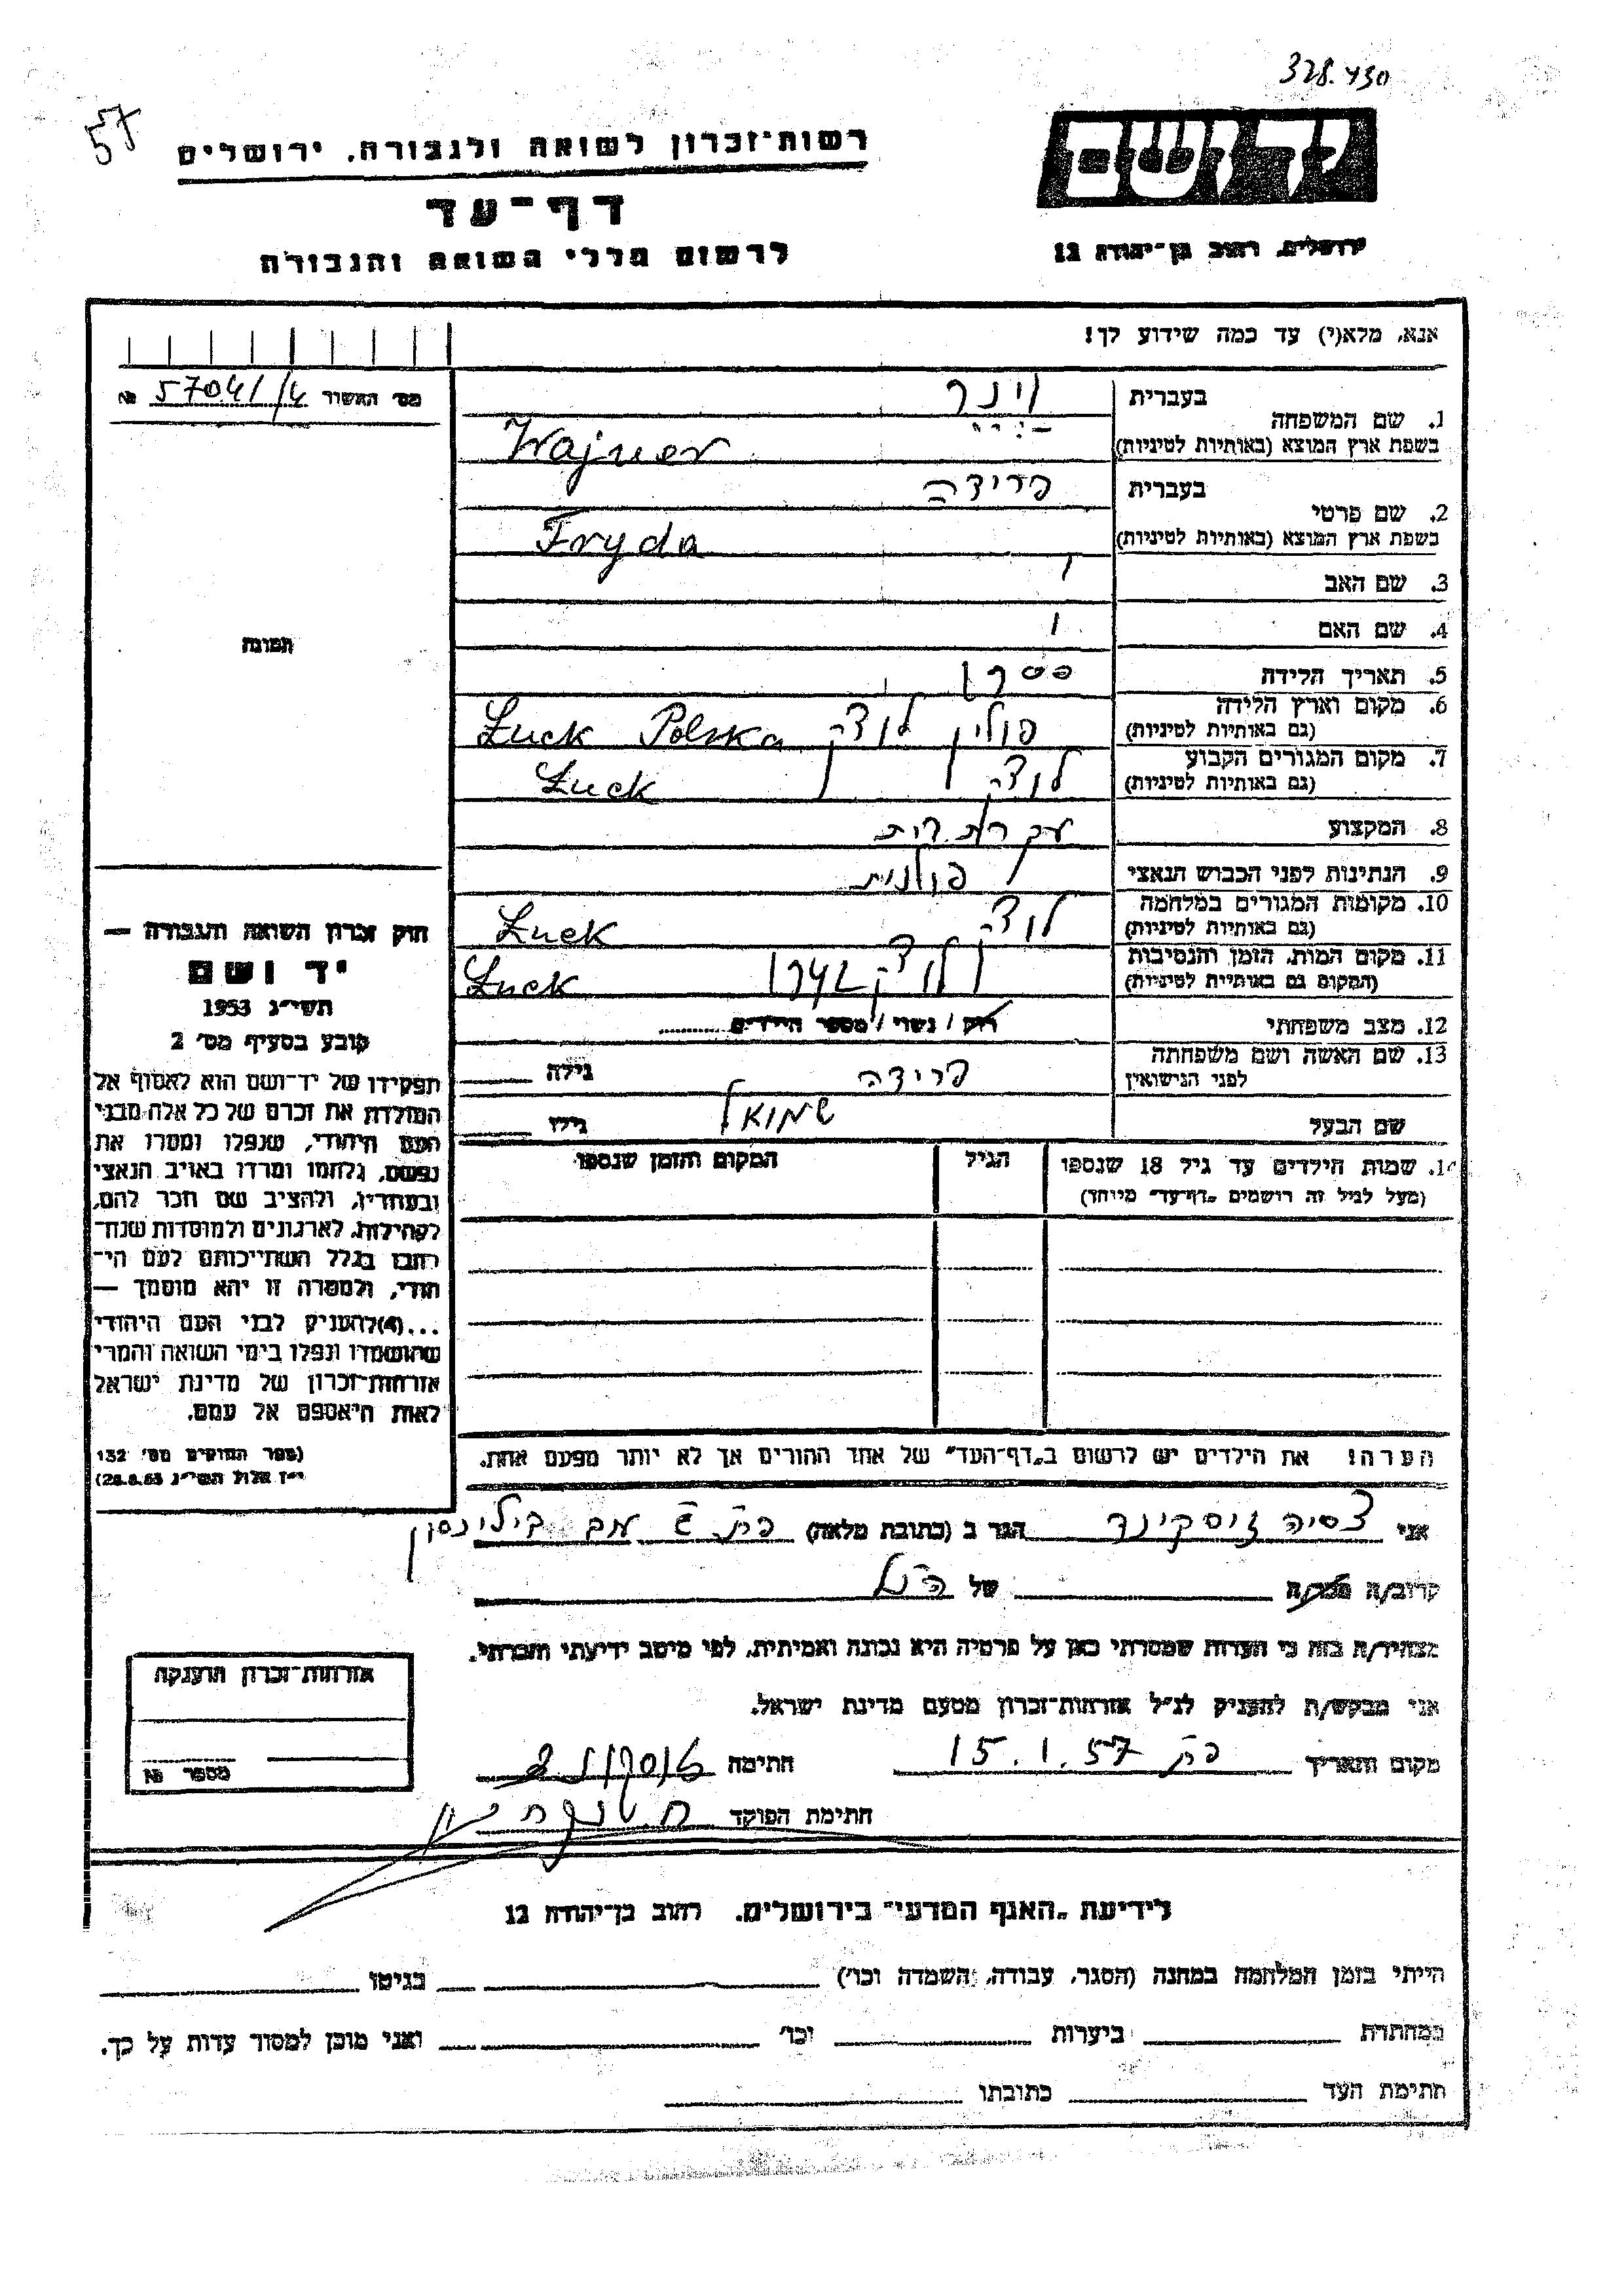 328.430
57
יד ושם
ירושלים, רחוב בן־יהודה 12
רשות־זכרון לשואה ולגבורה, ירושלים
דף־עד
לרשום חללי השואה והגבורה
אנא, מלא(י) עד כמה שידוע לך!
מס׳ האשור 57041/4 №
תמונה
1. שם המשפחה בעברית וינר
בשפת ארץ המוצא (באותיות לטיניות) Wajner
2. שם פרטי בעברית פרידה
בשפת ארץ המוצא (באותיות לטיניות) Fryda
3. שם האב
4. שם האם
5. תאריך הלידה
6. מקום וארץ הלידה (גם באותיות לטיניות) פולין לוצק Łuck Polska
7. מקום המגורים הקבוע (גם באותיות לטיניות) לוצק Łuck
8. המקצוע עקרת בית
9. הנתינות לפני הכבוש הנאצי פולנית
10. מקומות המגורים במלחמה (גם באותיות לטיניות) לוצק Łuck
11. מקום המות, הזמן והנסיבות (המקום גם באותיית לטיניות) לוצק Łuck
12. מצב משפחתי רוק / נשוי / מספר הילדים
13. שם האשה ושם משפחתה לפני הנישואין פרידה גילה
שם הבעל שמואל גילו
14. שמות הילדים עד גיל 18 שנספו (מעל לגיל זה רושמים „דף־עד״ מיוחד) הגיל המקום והזמן שנספו
הערה! את הילדים יש לרשום ב„דף־העד״ של אחד ההורים אך לא יותר מפעם אחת.
חוק זכרון השואה והגבורה —
יד ושם
תשי״ג 1953
קובע בסעיף מס׳ 2
תפקידו של יד־ושם הוא לאסוף אל
המולדת את זכרם של כל אלה מבני
העם היהודי, שנפלו ומסרו את
נפשם, נלחמו ומרדו באויב הנאצי
ובעוזריו, ולהציב שם וזכר להם,
לקהילות, לארגונים ולמוסדות שנח־
רבו בגלל השתייכותם לעם הי־
הודי, ולמטרה זו יהא מוסמך —
...(4)להעניק לבני העם היהודי
שהושמדו ונפלו בימי השואה והמרי
אזרחות־זכרון של מדינת ישראל
לאות היאספם אל עמם.
(ספר החוקים מס׳ 132
י״ז אלול תשי״ג 28.8.53)
אני צסיה זיסקינד הגר ב (כתובת מלאה) פת בילינסון
קרוב/ה מכר/ה של הנ״ל
מצהיר/ה בזה כי העדות שמסרתי כאן על פרטיה היא נכונה ואמיתית, לפי מיטב ידיעתי והכרתי.
אני מבקש/ת להעניק לנ״ל אזרחות־זכרון מטעם מדינת ישראל.
מקום ותאריך פת 15.1.57 חתימה
חתימת הפוקד
אזרחות־זכרון הוענקה
מספר №
לידיעת „האגף המדעי״ בירושלים, רחוב בן־יהודה 12
הייתי בזמן המלחמה במחנה (הסגר, עבודה, השמדה וכו׳) בגיטו
במחתרת ביערות וכו׳ ואני מוכן למסור עדות על כך.
חתימת העד כתובתו